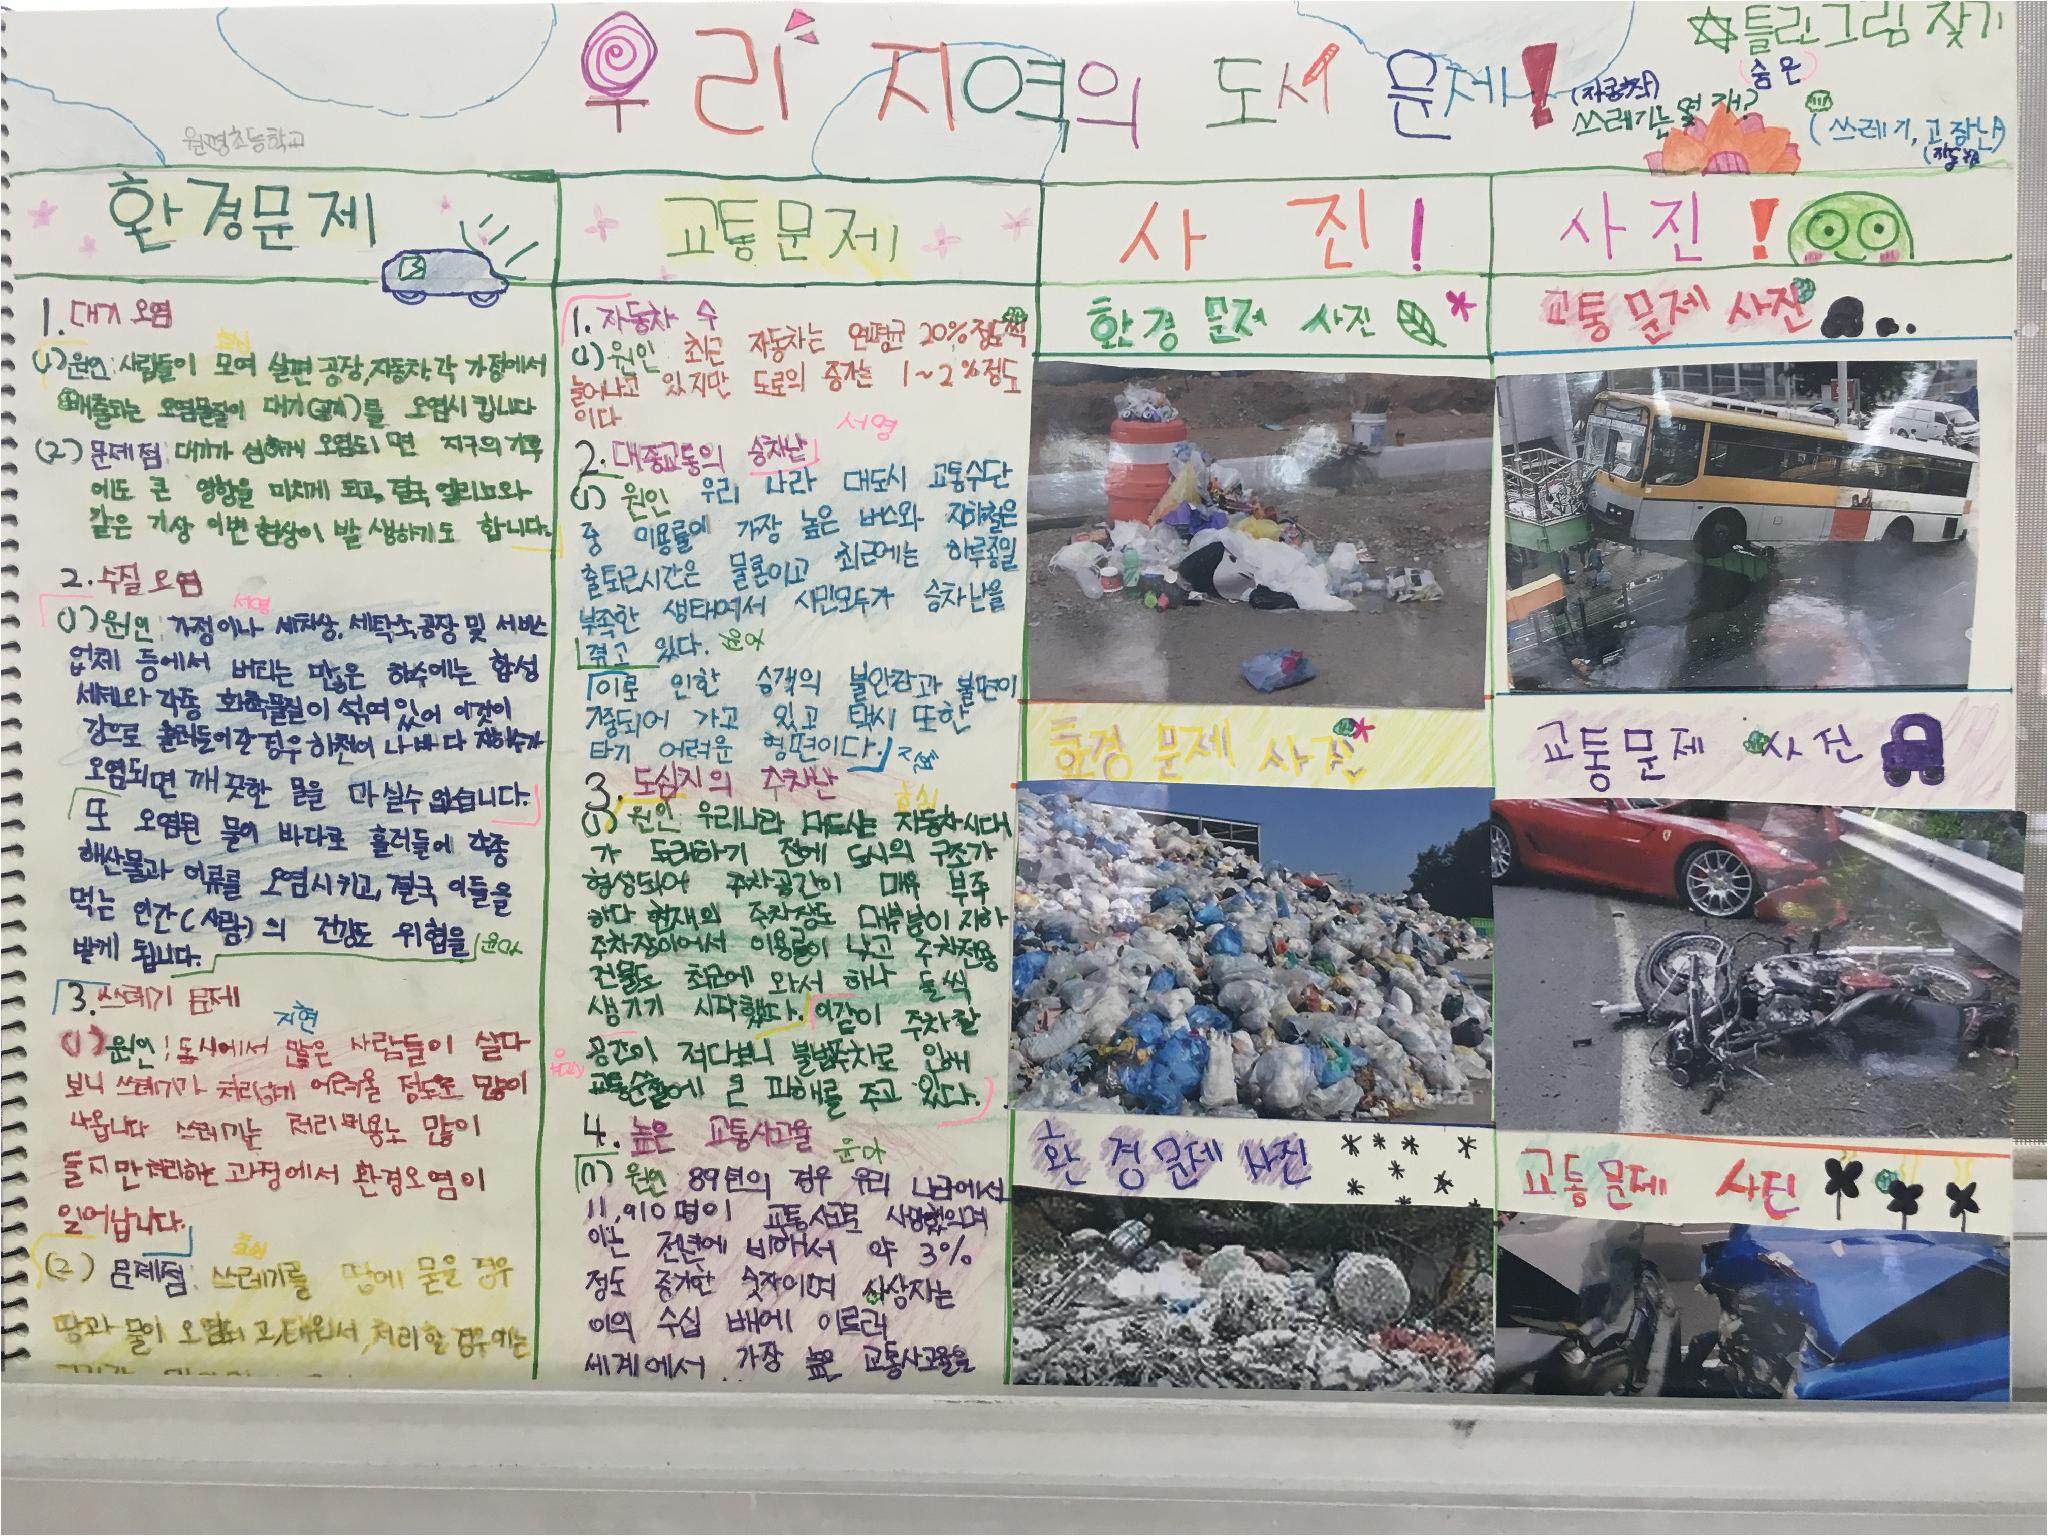 우리 지역의 도시 문제!
☆틀린그림 찾기
숨은
(자동차)
쓰레기는 몇 개?
(쓰레기, 고장난)
원평초등학교
환경문제
1. 대기 오염
효심
(1) 원인: 사람들이 모여 살면 공장, 자동차, 각 가정에서
배출되는 오염물질이 대기(공기)를 오염시킵니다
(2) 문제점: 대기가 심하게 오염되면 지구의 기후
에도 큰 영향을 미치게 되고, 결국 엘리뇨와
같은 기상 이변 현상이 발생하기도 합니다.
2. 수질오염
서영
(1) 원인: 가정이나 세차장, 세탁소, 공장 및 서비스
업체 등에서 버리는 많은 하수에는 합성
세제와 각종 화학물질이 섞여있어 이것이
강으로 흘러들어간 경우 하천이나 바다 지하수가
오염되면 깨끗한 물을 마실수 없습니다.
또 오염된 물이 바다로 흘러들어 각종
해산물과 어류를 오염시키고, 결국 이들을
먹는 인간(사람)의 건강도 위협을
받게 됩니다.
윤아
3. 쓰레기 문제
지현
(1) 원인: 도시에서 많은 사람들이 살다
보니 쓰레기가 처리하기 어려울 정도로 많이
나옵니다 쓰레기는 처리비용도 많이
들지만 처리하는 과정에서 환경오염이
일어납니다.
효심
(2) 문제점: 쓰레기를 땅에 묻을 경우
땅과 물이 오염되고, 태워서 처리할 경우에는
교통문제
1. 자동차 수
(1) 원인 최근 자동차는 연평균 20%정도씩
늘어나고 있지만 도로의 증가는 1~2%정도
이다
서영
2. 대중교통의 승차난
(1) 원인 우리 나라 대도시 교통수단
중 이용률에 가장 높은 버스와 지하철은
출퇴근시간은 물론이고 최근에는 하루종일
부족한 생태여서 시민모두가 승차난을
겪고 있다. 윤아
이로 인한 승객의 불안감과 불편이
가중되어 가고 있고 택시 또한
타기 어려운 형편이다.
3. 도심지의 주차난
효심
(1) 원인 우리나라 대도시는 자동차시대
가 도래하기 전에 도시의 구조가
형성되어 주차공간이 매우 부족
하다 현재의 주차장도 대부분이 지하
주차장이어서 이용률이 낮고 주차전용
건물도 최근에 와서 하나 둘씩
생기기 시작했다. 이같이 주차할
공간이 적다보니 불법주차로 인해
교통순환에 큰 피해를 주고 있다.
4. 높은 교통사고율
윤아
(1) 원인 89년의 경우 우리 나라에서
11,910명이 교통사고로 사망했으며
이는 전년에 비해서 약 3%
정도 증가한 숫자이며 사상자는
이의 수십 배에 이르러
세계에서 가장 높은 교통사고율을
사진!
환경 문제 사진
환경 문제 사진
환경문제 사진
사진!
교통문제 사진
교통문제 사진
교통문제 사진